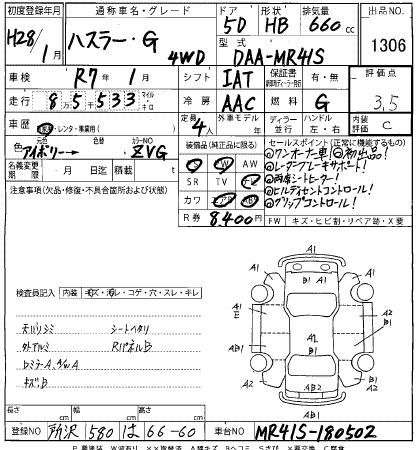 初度登録年月 通称車名・グレード ドア 形状 排気量 出品NO.
H28/1月 ハスラー・G 4WD 5D HB 660cc 1306
型式 DAA-MR41S
車検 R7年1月 シフト IAT 保証書 有・無 評価点
走行 85533 マイル キロ 冷房 AAC 燃料 G 3.5
車歴 自家・レンタ・事業用( ) 定員 4人 外車モデル ディーラー 並行 ハンドル 左・右 内装評価 C
色 元色 アイボリー 色替 カラーNO ZVG 装備品(純正品に限る) セールスポイント(正常に機能するもの)
名義変更期限 月 日迄 積載量 kg PS PW AW ◎ワンオーナー車!◎初出品!
注意事項(欠品・修復・不具合箇所および状態) SR TV ナビ ◎レーダーブレーキサポート!
カワ エアB AB ◎両席シートヒーター!
R券 8,400円 ◎ヒルディセントコントロール!
◎グリップコントロール!
FW キズ・ヒビ割・リペア跡・X要
検査員記入 内装 キズ・汚レ・コゲ・穴・スレ・キレ
天バリシミ シートヘタリ
外アルミ RパネルB
ロミラーA、タイヤA
キズ、B
A1 A1
A1 B1 A1
A1 E A2
AB1 A2 B1
A1 A2
A2 AB2 A2
AB1
長さ cm 幅 cm 高さ cm
登録NO 所沢 580 は 66-60 車台NO MR41S-180502